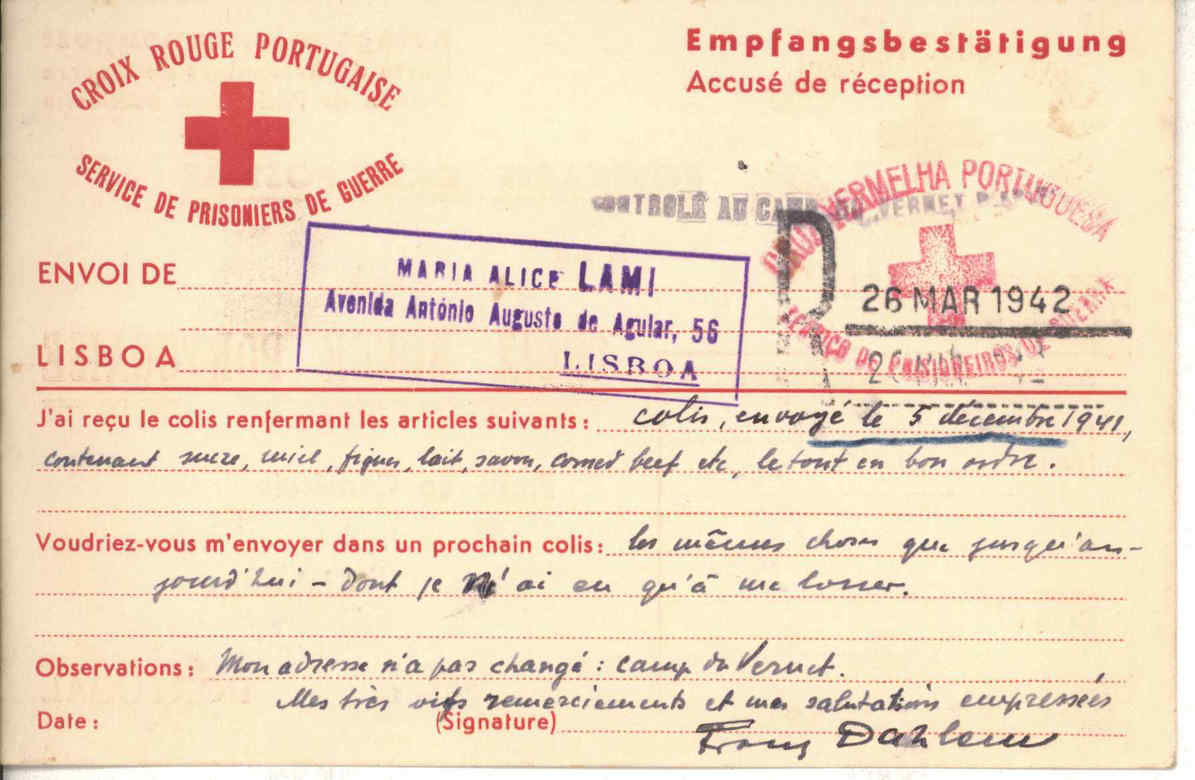 CROIX ROUGE PORTUGAISE
SERVICE DE PRISONIERS DE GUERRE
Empfangsbestätigung
Accusé de réception
CONTROLÉ AU CAMP VERNET
CRUZ VERMELHA PORTUGUESA
26 MAR 1942
SERVIÇO DE PRISIONEIROS DE GUERRA
ENVOI DE
MARIA ALICE LAMI
Avenida António Augusto de Aguiar, 56
LISBOA
LISBOA
J'ai reçu le colis renfermant les articles suivants: colis, envoyé le 5 décembre 1941,
contenant sucre, miel, figues, lait, savon, corned beef etc, le tout en bon ordre.
Voudriez-vous m'envoyer dans un prochain colis: les mêmes choses que jusqu'au-
jourd'hui – dont je n'ai eu qu'à me louer.
Observations: Mon adresse n'a pas changé: camp du Vernet.
Mes très vifs remerciements et mes salutations empressées
Date: (Signature) Franz Dahlem